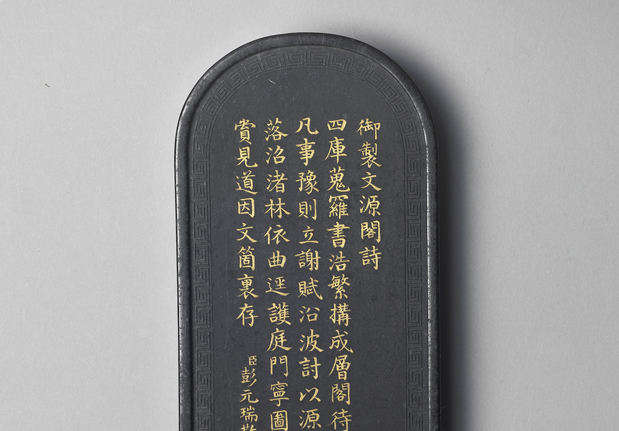 御製文源閣詩
四庫蒐羅書浩繁構成層閣待
凡事豫則立謝賦沿波討以源
落沼渚林依曲逕護庭門寧圖
賞見道因文箇裏存
臣彭元瑞敬